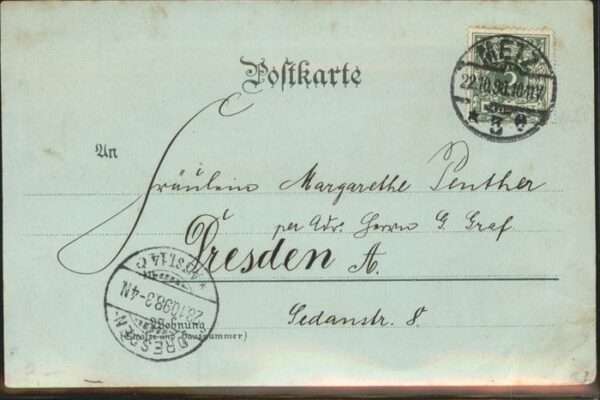 Postkarte
METZ
22.10.98.10-11V.
* 3 e
An
Fräulein Margarethe Penther
per Adr. Herrn G. Graf
Dresden A.
Sedanstr. 8.
DRESDEN
23.10.98.3-4N.
Wohnung
(Straße und Hausnummer)